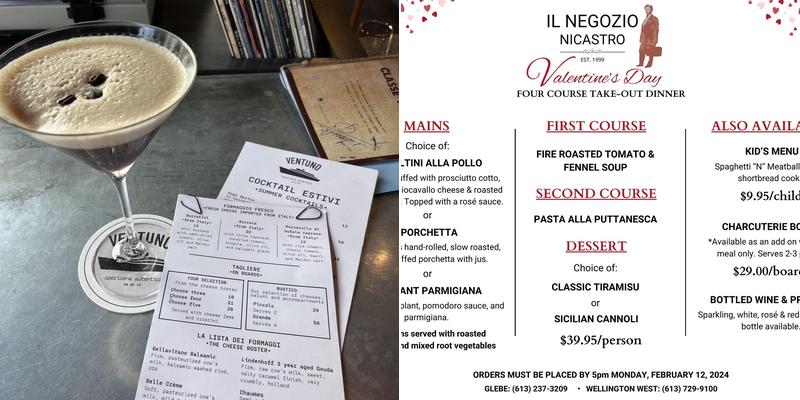 VENTUNO
COCKTAIL ESTIVI
•SUMMER COCKTAILS•
FORMAGGIO FRESCO
•FRESH CHEESE IMPORTED FROM ITALY•
TAGLIERE
•ON BOARDS•
YOUR SELECTION
From the cheese roster
Choose three 16
Choose four 21
Choose five 26
Served with cheese jams
and crostini
RUSTICO
Our selection of cheeses,
salumi and accompaniments
Piccolo 29
Serves 2
Grande 56
Serves 4
LA LISTA DEI FORMAGGI
•THE CHEESE ROSTER•
Bellavitano Balsamic
Firm, pasteurized cow's
milk, balsamic washed rind,
USA
Belle Crème
Soft, pasteurized cow's
Lindenhoff 3 year aged Gouda
Firm, raw cow's milk, sweet,
salty caramel finish, very
crumbly, Holland
Chaumes
VENTUNO
apericena autentico
IL NEGOZIO
NICASTRO
EST. 1999
Valentine's Day
FOUR COURSE TAKE-OUT DINNER
MAINS
Choice of:
LTINI ALLA POLLO
uffed with prosciutto cotto,
iocavallo cheese & roasted
. Topped with a rosé sauce.
or
PORCHETTA
s hand-rolled, slow roasted,
ffed porchetta with jus.
or
ANT PARMIGIANA
plant, pomodoro sauce, and
parmigiana.
ns served with roasted
nd mixed root vegetables
FIRST COURSE
FIRE ROASTED TOMATO &
FENNEL SOUP
SECOND COURSE
PASTA ALLA PUTTANESCA
DESSERT
Choice of:
CLASSIC TIRAMISU
or
SICILIAN CANNOLI
$39.95/person
ALSO AVAILA
KID'S MENU
Spaghetti "N" Meatball
shortbread cook
$9.95/child
CHARCUTERIE BO
*Available as an add on
meal only. Serves 2-3
$29.00/board
BOTTLED WINE & PR
Sparkling, white, rosé & red
bottle available.
ORDERS MUST BE PLACED BY 5pm MONDAY, FEBRUARY 12, 2024
GLEBE: (613) 237-3209 • WELLINGTON WEST: (613) 729-9100